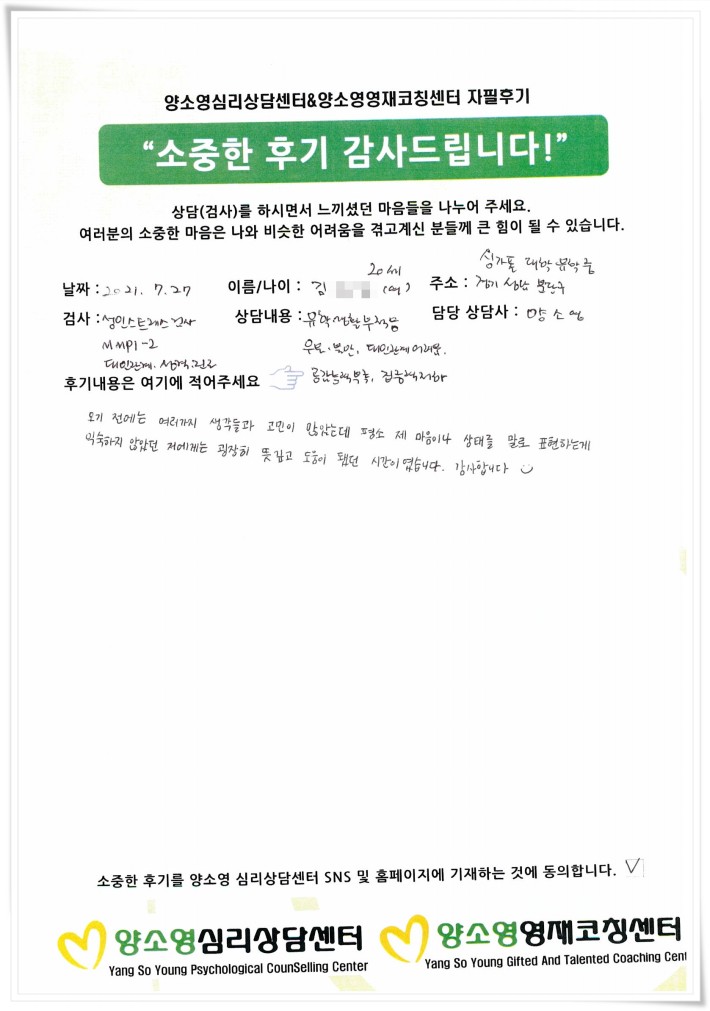 양소영심리상담센터&양소영영재코칭센터 자필후기
“소중한 후기 감사드립니다!”
상담(검사)를 하시면서 느끼셨던 마음들을 나누어 주세요.
여러분의 소중한 마음은 나와 비슷한 어려움을 겪고계신 분들께 큰 힘이 될 수 있습니다.
싱가폴 대학 유학중
20세
날짜 : 2021. 7.27 이름/나이 : 김 (여) 주소 : 경기 성남 분당구
검사 : 성인스트레스검사 상담내용 : 유학생활부적응 담당 상담사 : 양소영
MMPI-2 우울.불안, 대인관계어려움.
대인관계. 성격.진로
후기내용은 여기에 적어주세요 공감능력부족, 집중력저하
오기 전에는 여러가지 생각들과 고민이 많았는데 평소 제 마음이나 상태를 말로 표현하는게
익숙하지 않았던 저에게는 굉장히 뜻깊고 도움이 됐던 시간이였습니다. 감사합니다
소중한 후기를 양소영 심리상담센터 SNS 및 홈페이지에 기재하는 것에 동의합니다. V
양소영심리상담센터 양소영영재코칭센터
Yang So Young Psychological CounSelling Center Yang So Young Gifted And Talented Coaching Cent